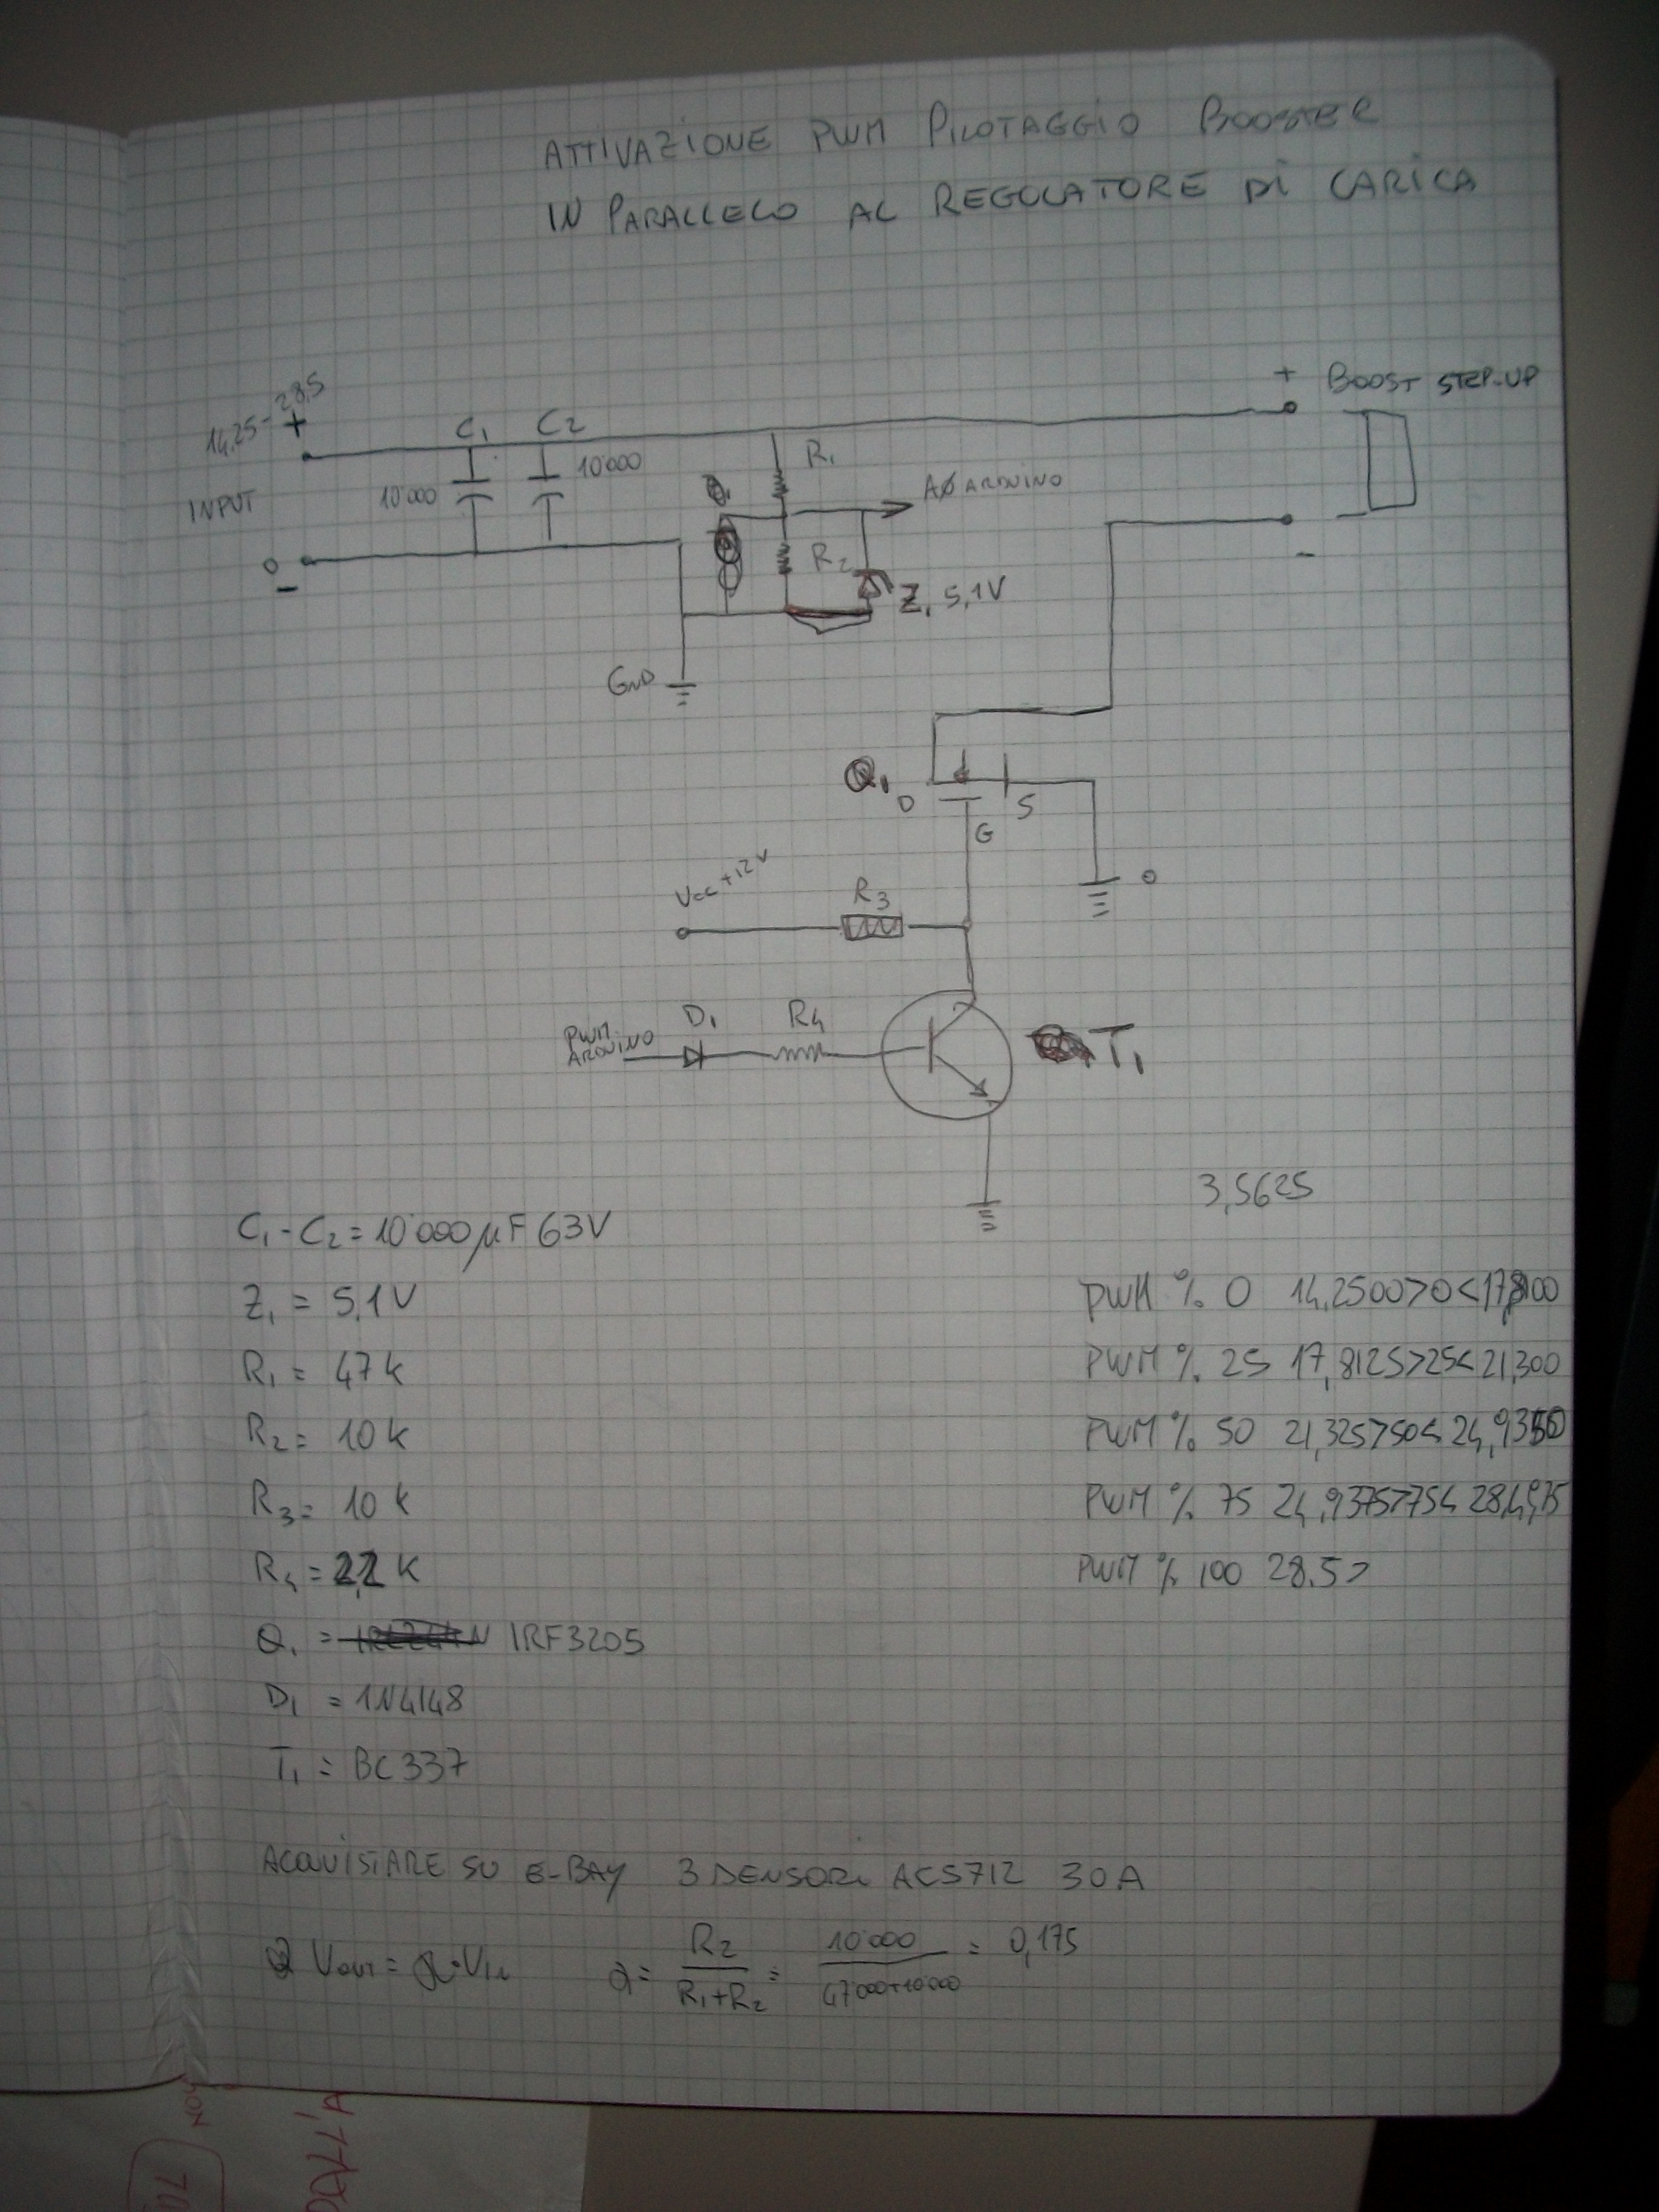 ATTIVAZIONE PWM PILOTAGGIO BOOSTER
IN PARALLELO AL REGOLATORE DI CARICA
14,25-28,5
+
C1 C2
10'000
10'000
INPUT
0
-
R1
A0 ARDUINO
R2
Z1 5,1V
GND
+ BOOST STEP-UP
-
Q1
D
S
G
0
VCC +12V
R3
PWM
ARDUINO
D1
R4
T1
3,5625
C1-C2=10'000µF 63V
Z1 = 5,1V
R1 = 47K
R2= 10K
R3= 10K
R4 = 2,2K
Q1 = IRF3205
D1 = 1N4148
T1 = BC337
PWM % 0 14,2500>0<
PWM % 25 17,8125>25<21,300
PWM % 50 21,325>50<
PWM % 75 24,9375>75<
PWM % 100 28.5>
ACQUISTARE SU E-BAY 3 SENSORI ACS712 30A
VOUT = a·VIN a= R2 / R1+R2 = 10'000 / 47'000+10'000 = 0,175
NON
DALL'A